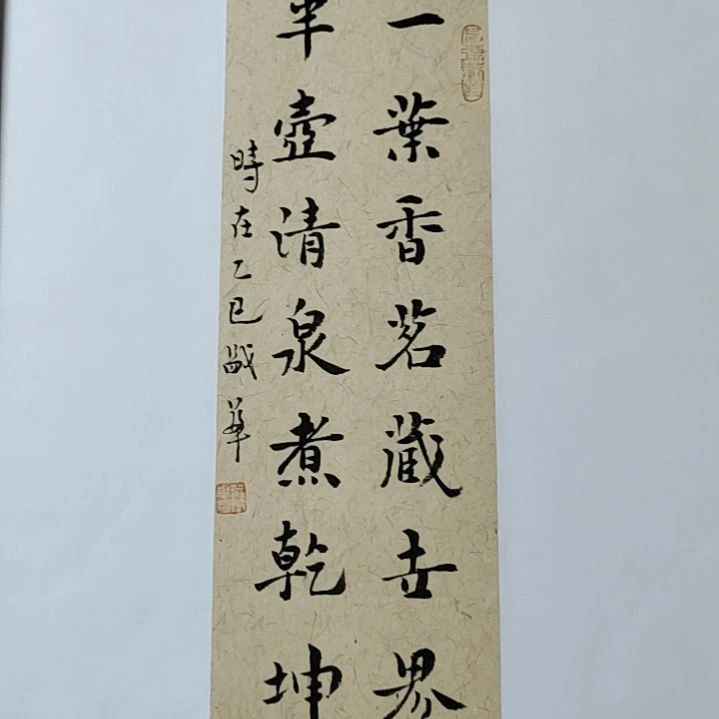 一葉香茗藏世界
半壺清泉煮乾坤
時在乙巳
華